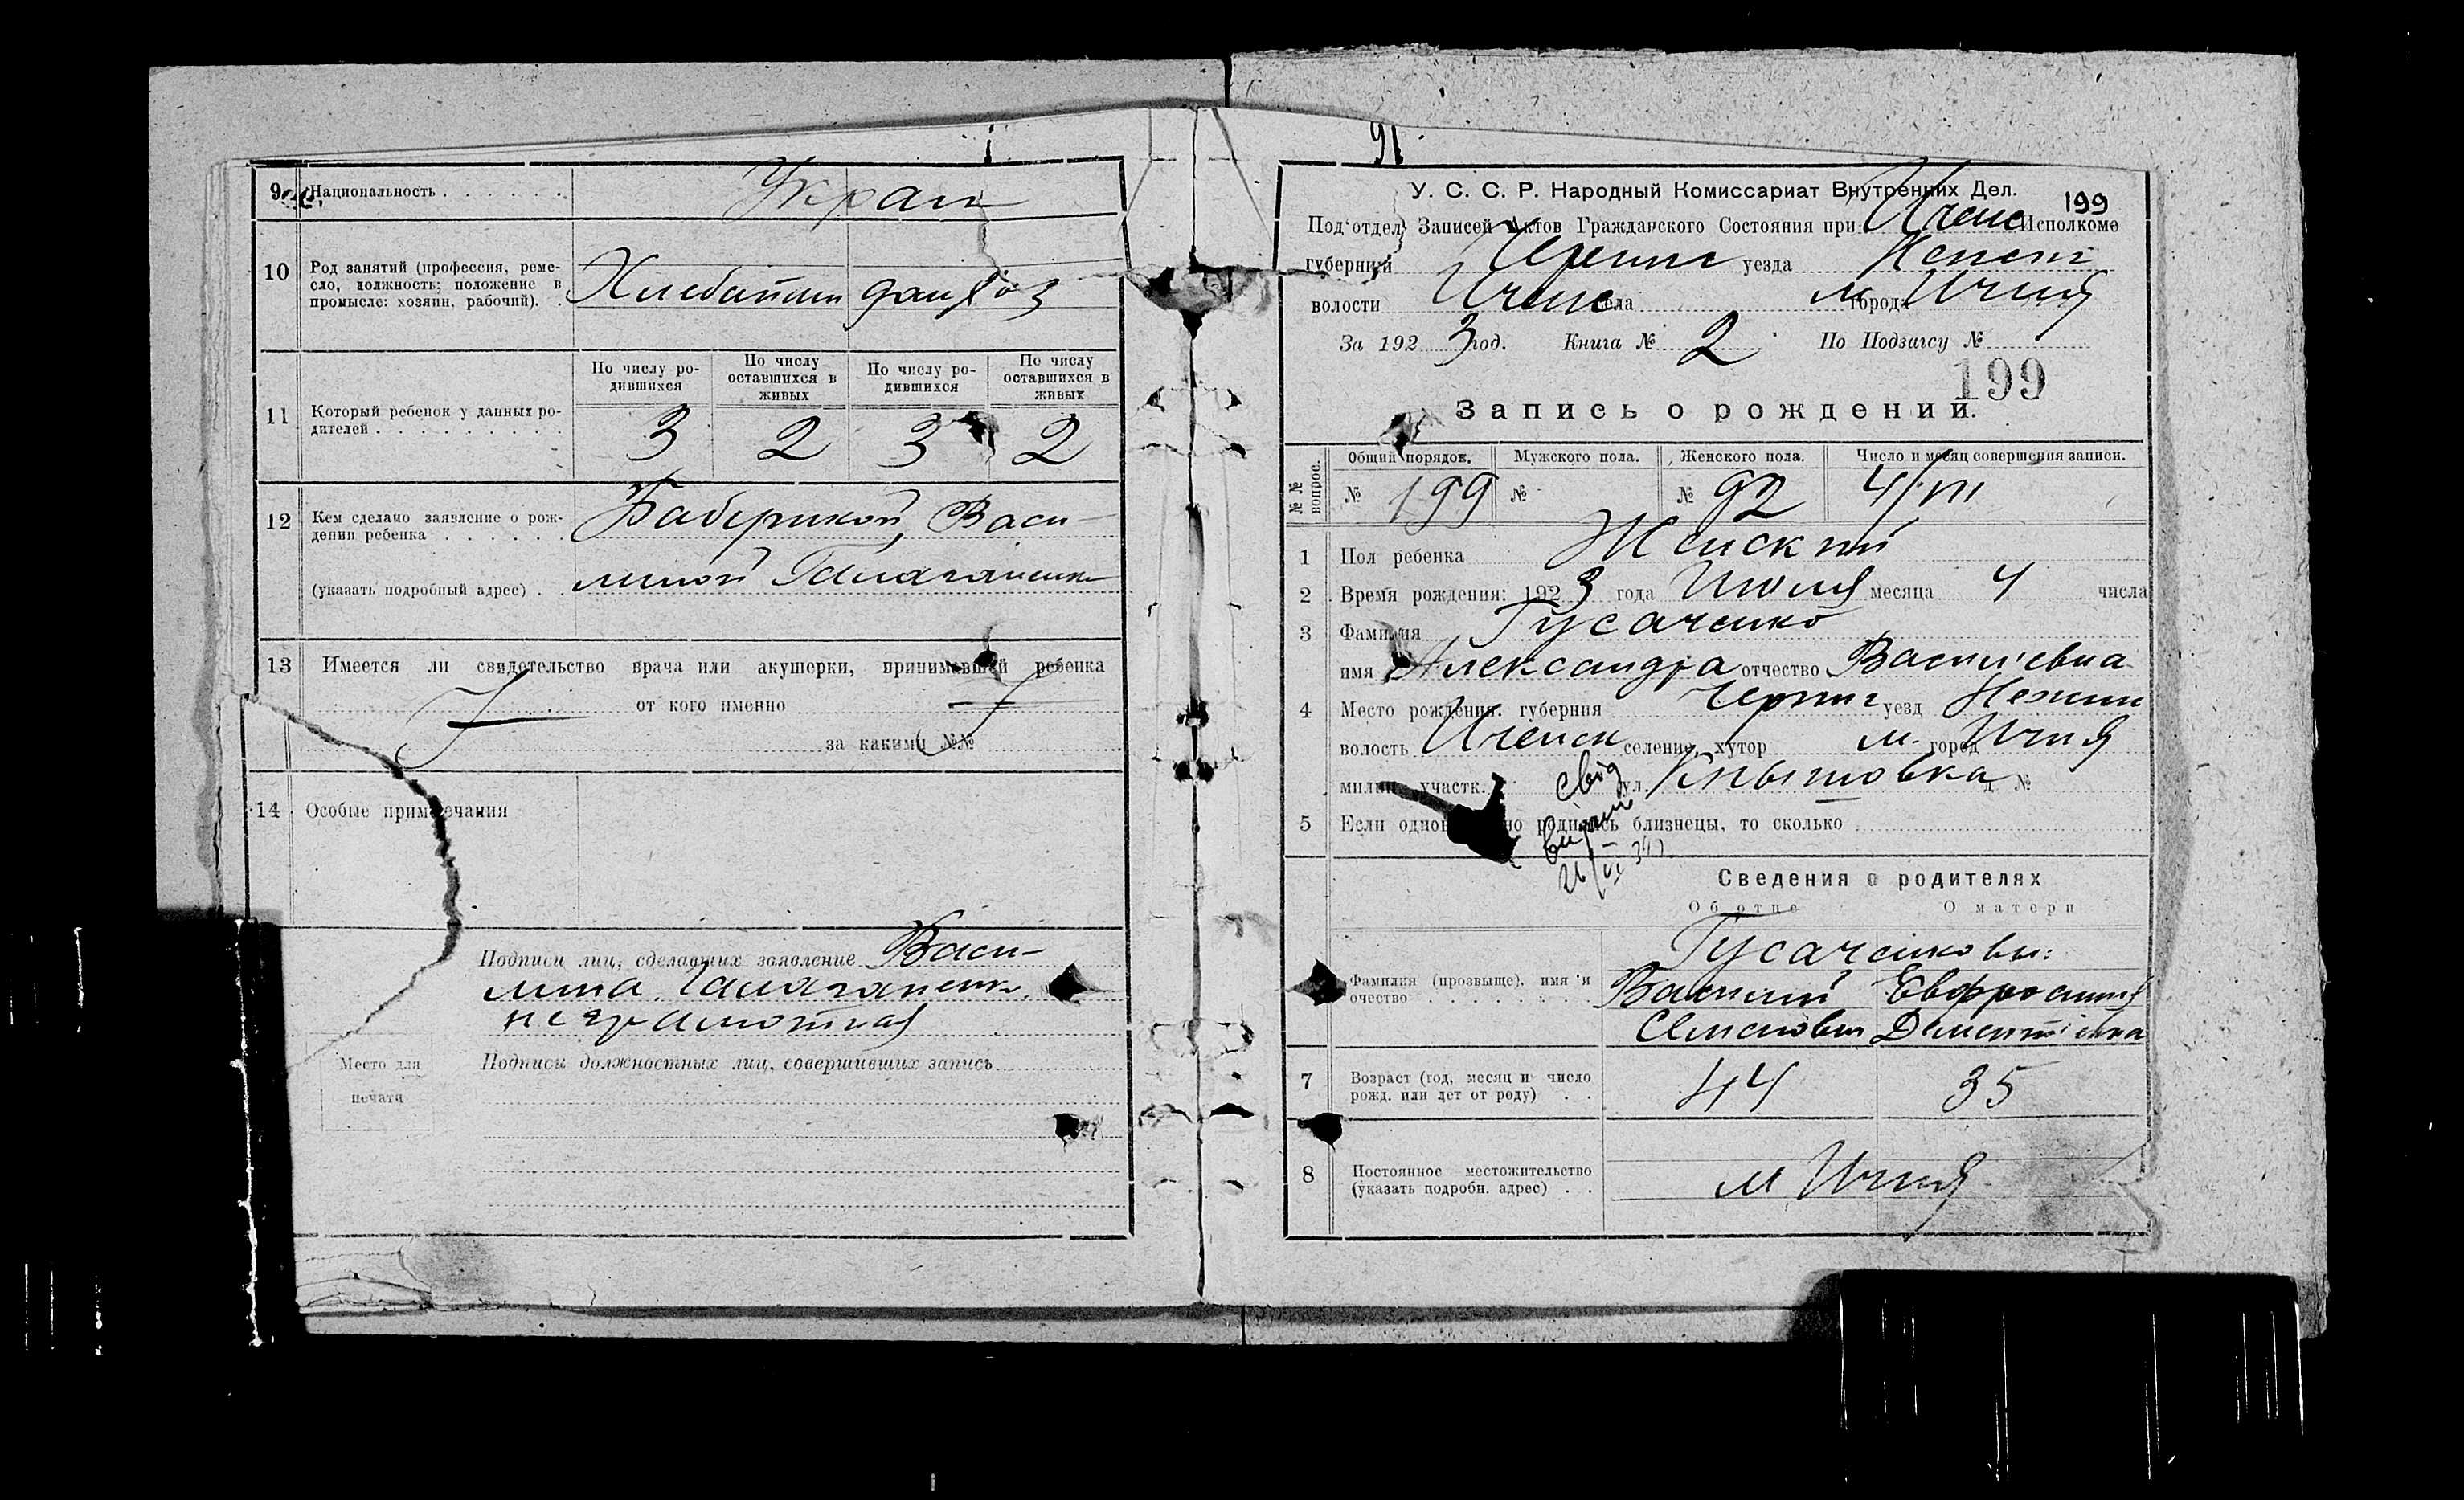 9 Национальность Украи
10 Род занятий (профессия, реме-
сло, должность; положение в
промысле: хозяин, рабочий). Хлебопаш дом/хоз
11 Который ребенок у данных ро-
дителей
По числу ро-
дившихся
По числу
оставшихся в
живых
По числу ро-
дившихся
По числу
оставшихся в
живых
3 2 3 2
12 Кем сделано заявление о рож-
дении ребенка Бабушкой, Васи-
(указать подробный адрес) линой Галаганенк
13 Имеется ли свидетельство врача или акушерки, принимавшей ребенка
от кого именно
за какими №№
14 Особые примечания
Подписи лиц, сделавших заявление Васи-
лина Галаганенк
неграмотная
Место для
печати
Подписи должностных лиц, совершивших запись
91
У. С. С. Р. Народный Комиссариат Внутренних Дел.
199
Под'отдел Записей Актов Гражданского Состояния при Ичен Исполкоме
губернии Черниг уезда Нежен
волости Ичен села м города Ичня
За 1923 год. Книга № 2 По Подзагсу №
199
Запись о рождении.
№№ вопрос.
Общий порядок. Мужского пола. Женского пола. Число и месяц совершения записи.
№ 199 № № 92 4/VII
1 Пол ребенка Женский
2 Время рождения: 1923 года Июля месяца 4 числа
3 Фамилия Гусаченко
имя Александра отчество Васильевна
4 Место рождения. губерния Черниг уезд Нежин
волость Иченск селение, хутор м. город Ичня
милиц. участк. ул. д №
свід
видано
5 Если одновременно родились близнецы, то сколько
26/VI 39
Сведения о родителях
Об отце О матери
Гусаченковы:
Фамилия (прозвыще), имя и
очество Василий Евфросиния
Семенович Дементиевна
7 Возраст (год, месяц и число
рожд. или лет от роду) 44 35
8 Постоянное местожительство
(указать подробн. адрес) м Ичня